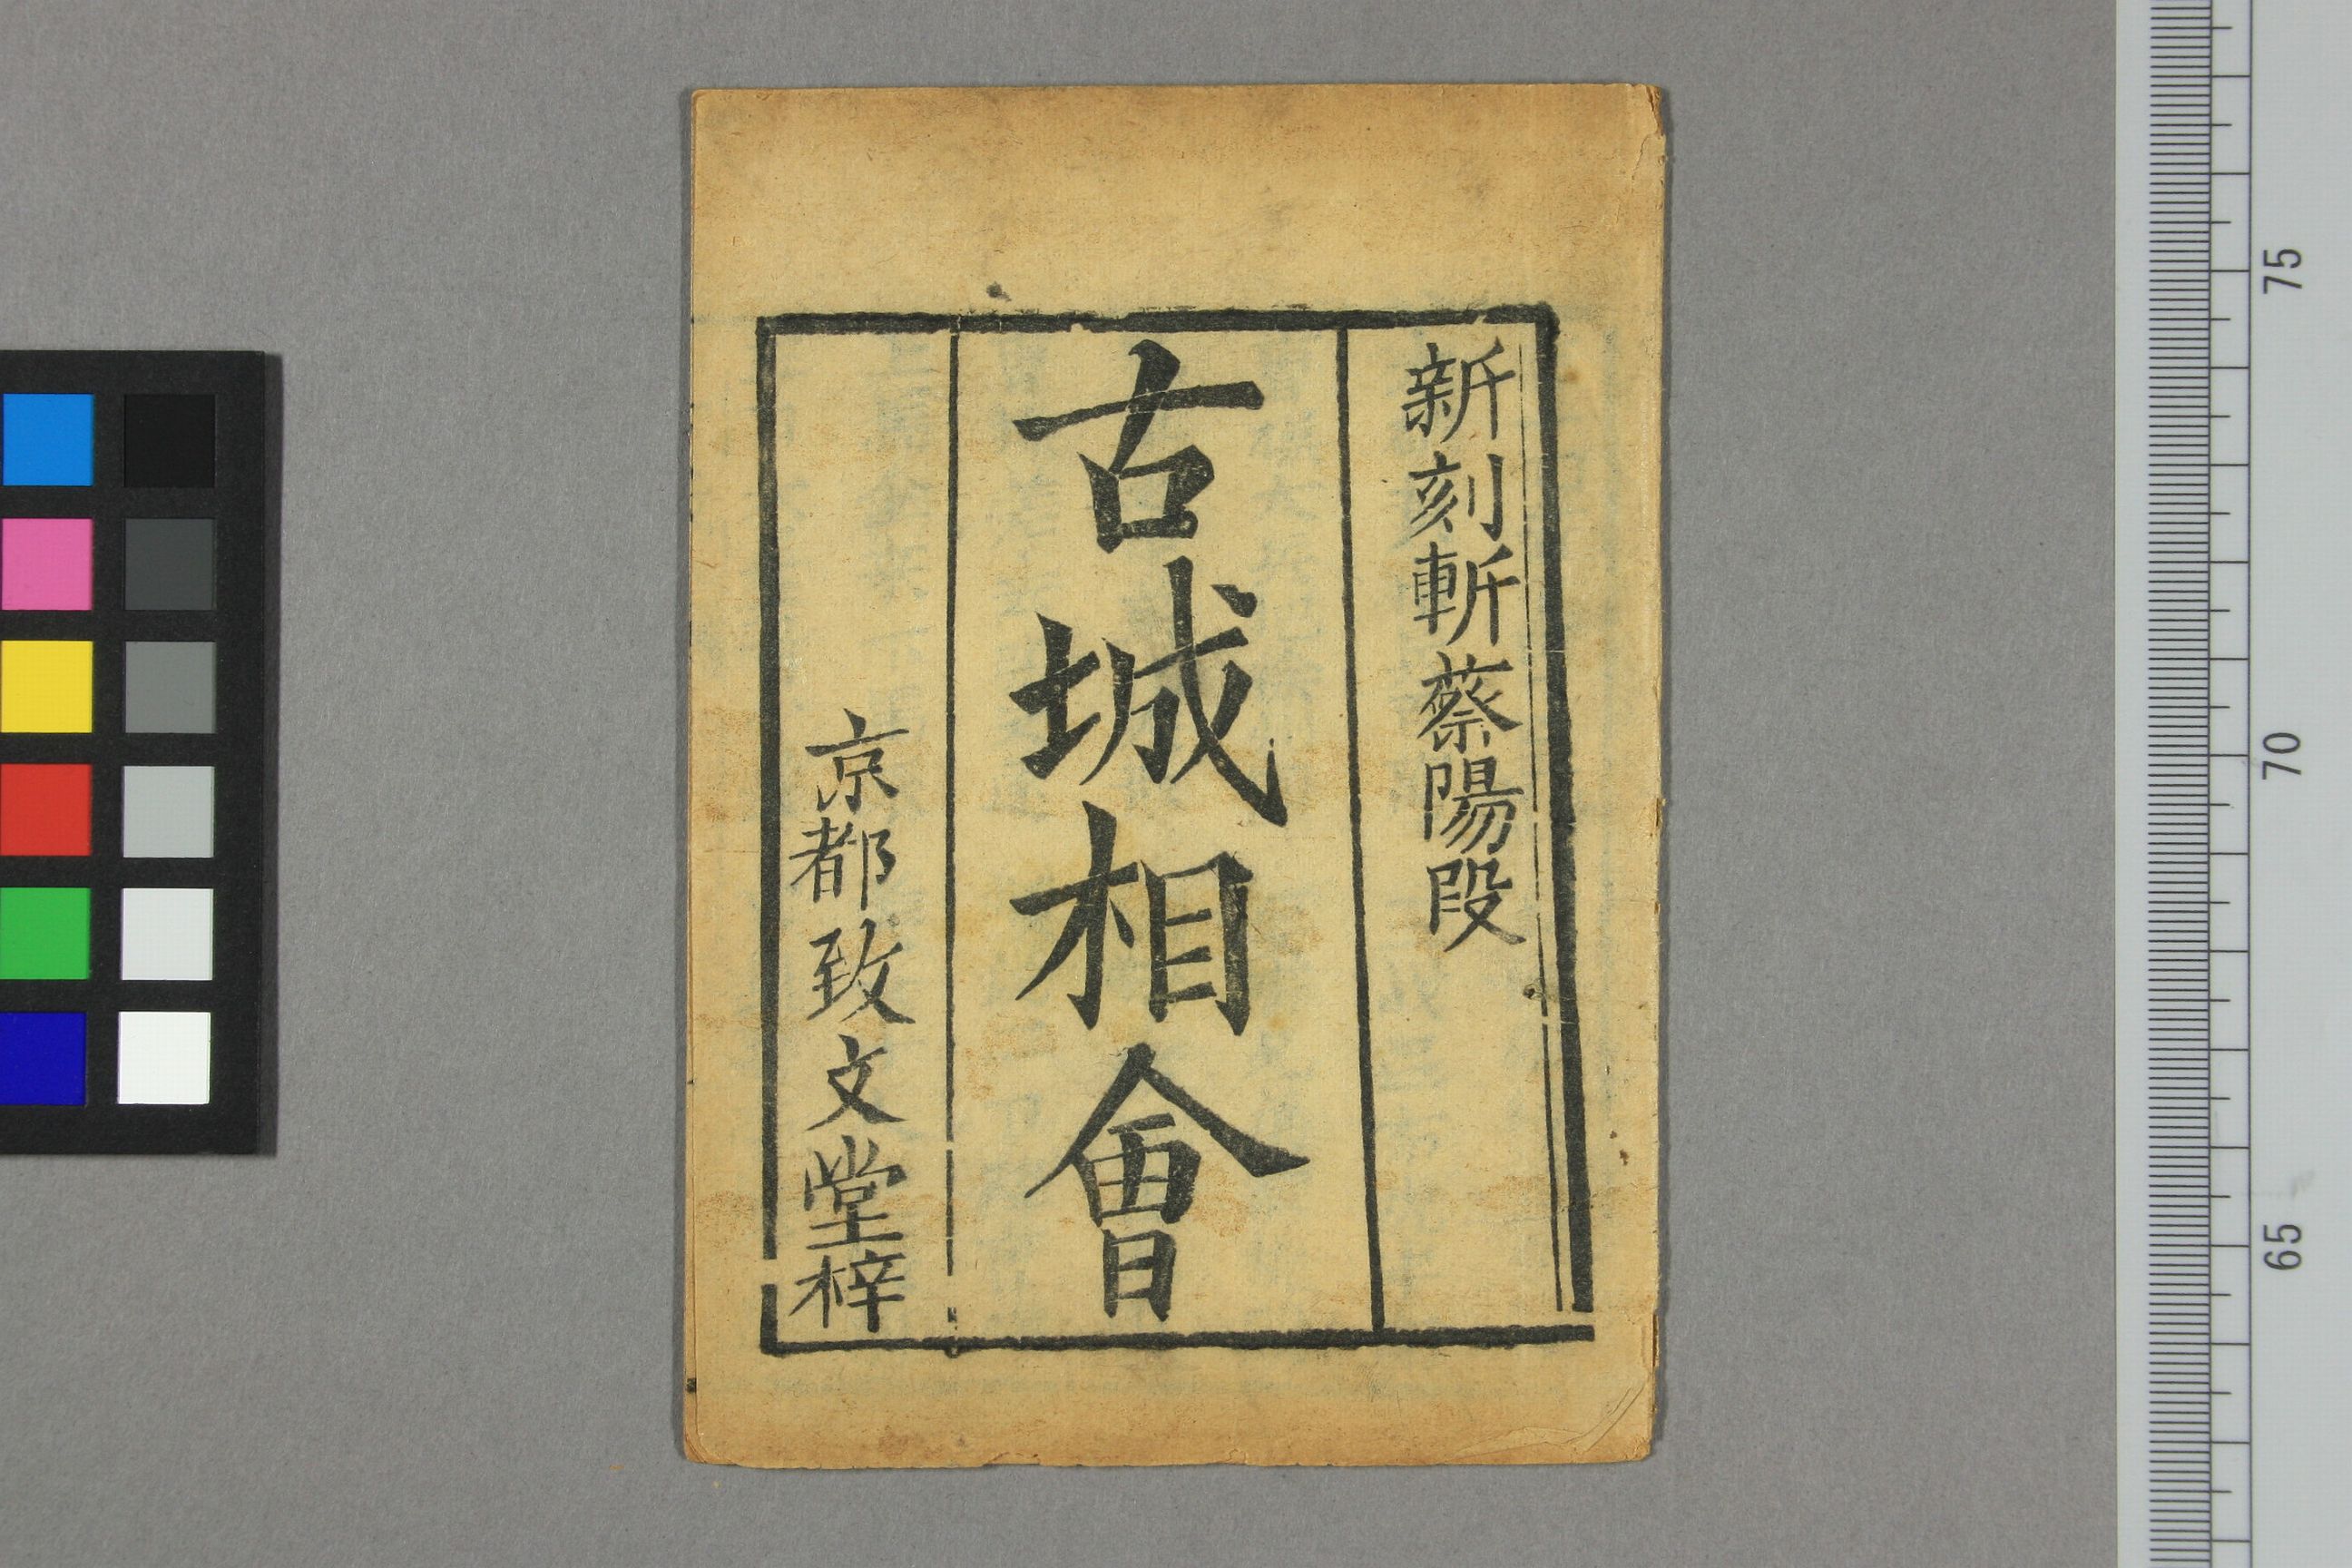 新刻斬蔡陽段
古城相會
京都致文堂梓
75
70
65